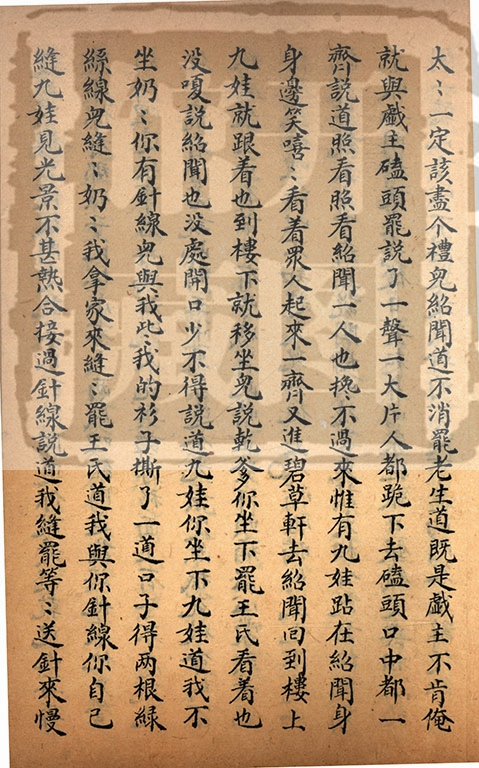 太〻一定該盡个禮兒紹聞道不消罷老生道既是戲主不肯俺
就與戲主磕頭罷說了一聲一大片人都跪下去磕頭口中都一
齊說道照看照看紹聞一人也攙不過來惟有九娃跕在紹聞身
身邊笑嘻〻看着眾人起來一齊又進碧草軒去紹聞回到樓上
九娃就跟着也到樓下就移坐兒說乾爹你坐下罷王氏看着也
没嗄說紹聞也没處開口少不得說道九娃你坐下九娃道我不
坐奶〻你有針線兒與我此〻我的衫子撕了一道口子得两根綠
絲線兒縫〻奶〻我拿家來縫〻罷王氏道我與你針線你自己
縫九娃見光景不甚熟合接過針線說道我縫罷等〻送針來慢